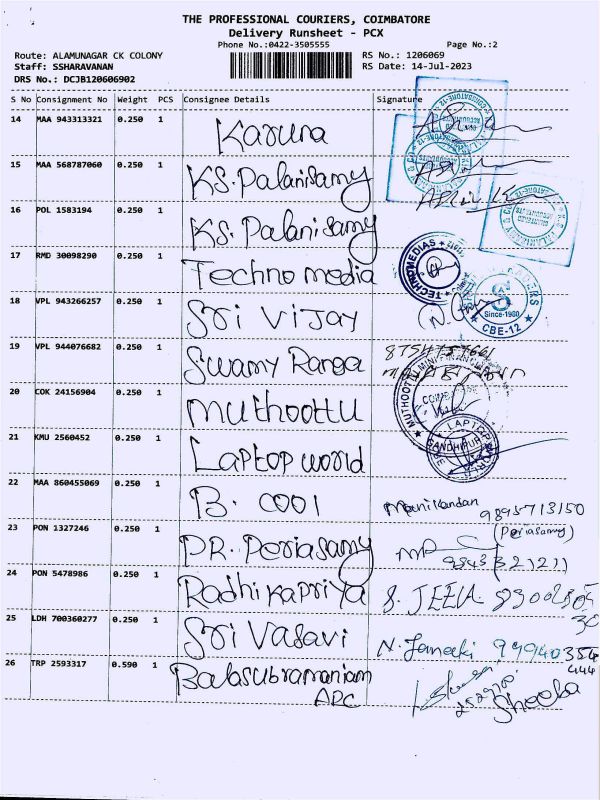 THE PROFESSIONAL COURIERS, COIMBATORE
Delivery Runsheet - PCX
Phone No.:0422-3505555 Page No.:2
Route: ALAMUNAGAR CK COLONY RS No.: 1206069
Staff: SSHARAVANAN RS Date: 14-Jul-2023
DRS No.: DCJB120606902
S No Consignment No Weight PCS Consignee Details Signature
14 MAA 943313321 0.250 1 Karuna
15 MAA 568787060 0.250 1 KS. Palanisamy
16 POL 1583194 0.250 1 KS. Palanisamy
17 RMD 30098290 0.250 1 Techno media TECHNOMEDIAS
18 VPL 943266257 0.250 1 Sri Vijay Since-1980 CBE-12
19 VPL 944076682 0.250 1 Swamy Ranga
20 COK 24156904 0.250 1 Muthoottu
21 KMU 2560452 0.250 1 Laptop world GANDHIPURAM
22 MAA 860455069 0.250 1 B. COOl Manikandan 9895713150
23 PON 1327246 0.250 1 PR. Periasamy (Periasamy) 9843321211
24 PON 5478986 0.250 1 Radhikapriya
25 LDH 700360277 0.250 1 Sri Vasavi N. Janaki 99940354
444
26 TRP 2593317 0.590 1 Balasubramaniam Sheeba
APC